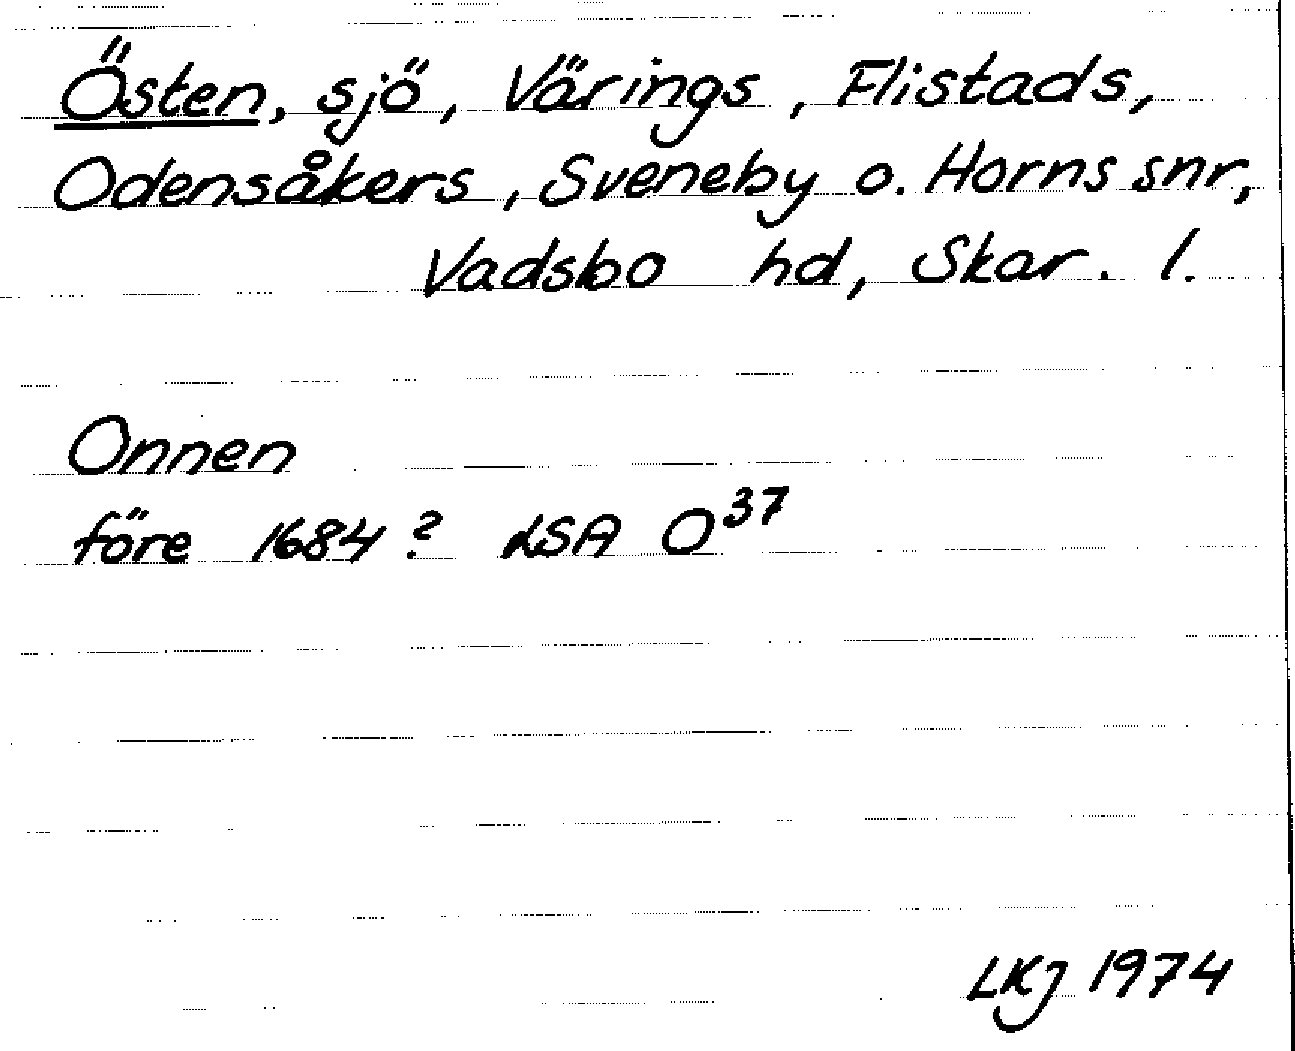 Östen, sjö, Värings, Flistads,
Odensåkers, Sveneby o. Horns snr,
Vadsbo hd, Skar. l.
Onnen
före 1684? LSA O³⁷
LKJ 1974